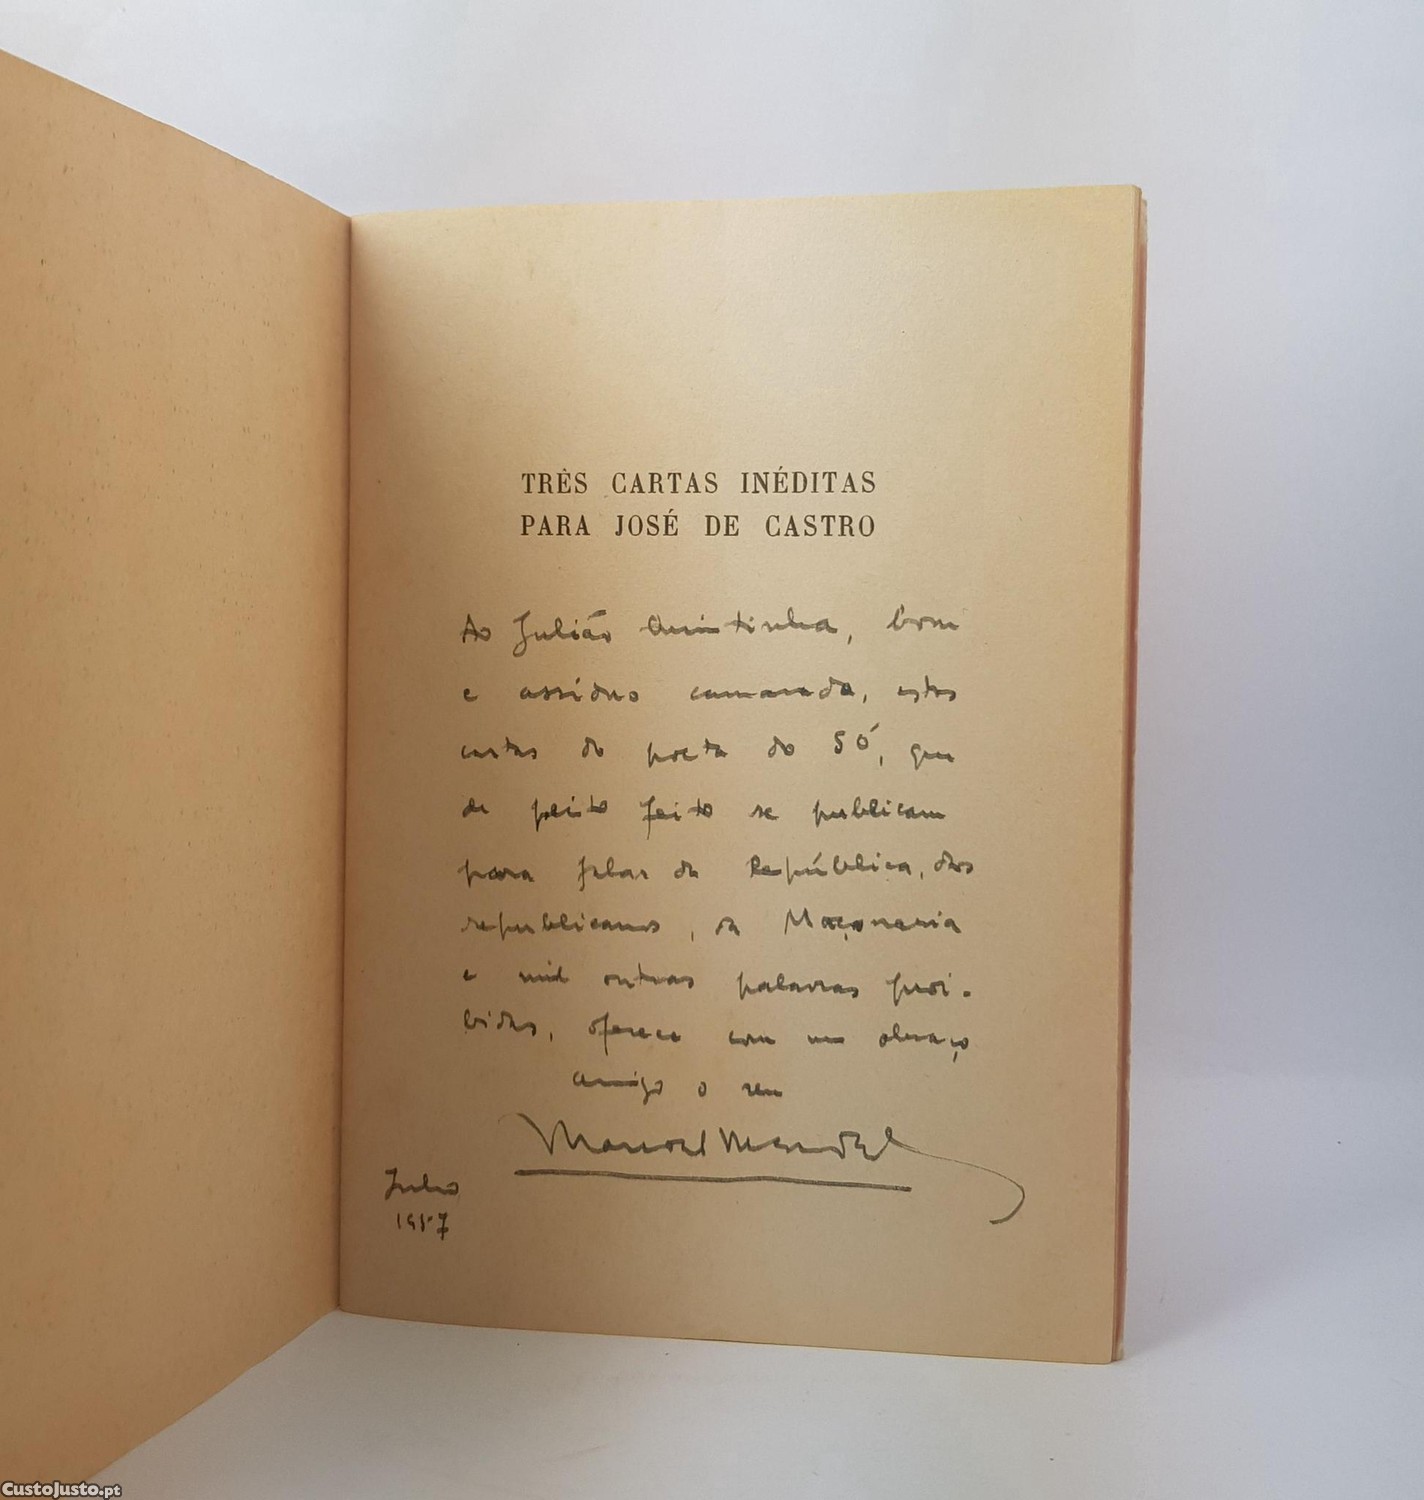 TRÊS CARTAS INÉDITAS
PARA JOSÉ DE CASTRO
Ao Julião Quintinha, bom
e assíduo camarada, estas
cartas do poeta do SÓ, que
de peito feito se publicam
para falar da República, dos
republicanos, da Maçonaria
e mil outras palavras proi-
bidas, oferece com um abraço
amigo o seu
Manuel Mendes
Julho
1957
CustoJusto.pt